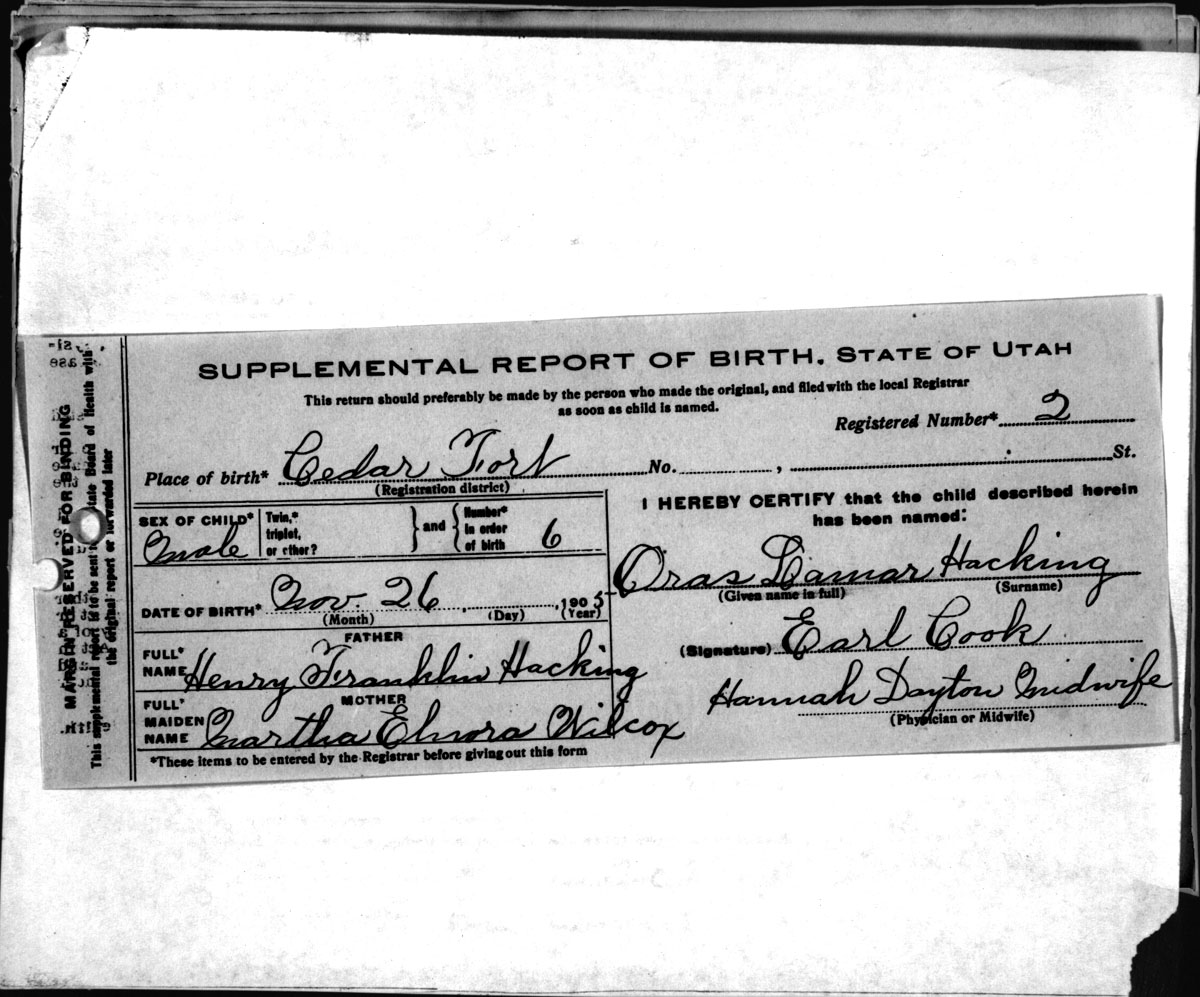 SUPPLEMENTAL REPORT OF BIRTH, STATE OF UTAH
This return should preferably be made by the person who made the original, and filed with the local Registrar
as soon as child is named.
Registered Number* 2
Place of birth* Cedar Fort No. , St.
(Registration district)
SEX OF CHILD* Male
Twin,* triplet, or other? } and { Number* in order of birth 6
DATE OF BIRTH* Nov. 26, , 1905
(Month) (Day) (Year)
FATHER
FULL* NAME Henry Franklin Hacking
MOTHER
FULL* MAIDEN NAME Martha Elnora Wilcox
*These items to be entered by the Registrar before giving out this form
I HEREBY CERTIFY that the child described herein
has been named:
Oras Lamar Hacking
(Given name in full) (Surname)
(Signature) Earl Cook
Hannah Dayton Midwife
(Physician or Midwife)
MARGIN RESERVED FOR BINDING
This supplemental report is to be sent to State Board of Health with
the original report or forwarded later